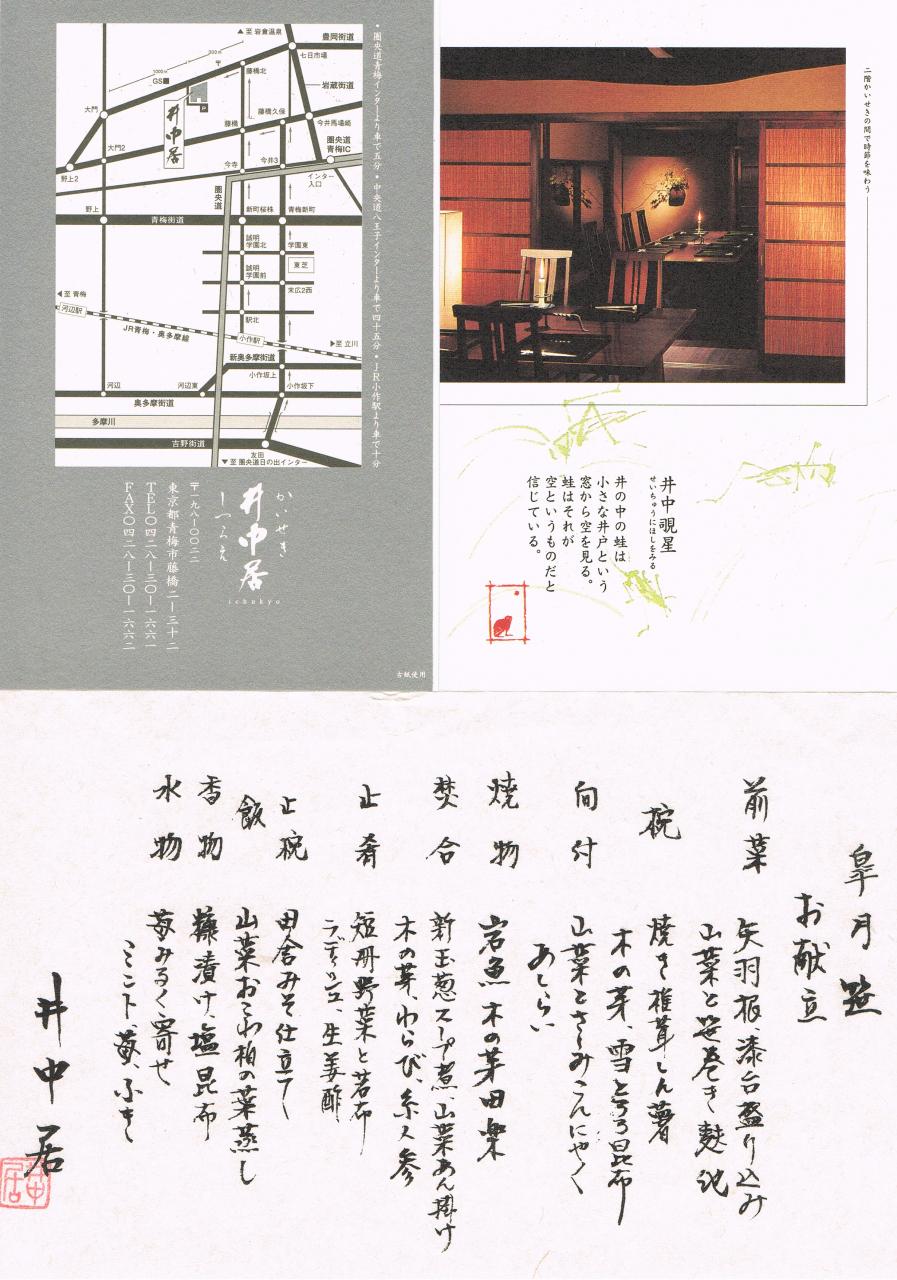 ・圏央道青梅インターより車で五分・中央道八王子インターより車で四十五分・JR小作駅より車で十分
▲至 岩倉温泉
豊岡街道
七日市場
200m
1000m
〒
GS■
藤橋北
岩蔵街道
大門
P
井中居
藤橋
藤橋久保
今井馬場崎
大門2
圏央道
青梅IC
野上2
今寺
今井3
インター
入口
圏央道
野上
新町桜株
青梅新町
青梅街道
誠明
学園北
学園東
東芝
誠明
学園前
末広2西
◀至 青梅
河辺駅
駅北
JR青梅・奥多摩線
小作駅
▶至 立川
新奥多摩街道
小作坂上
河辺
河辺東
小作坂下
奥多摩街道
多摩川
吉野街道
友田
▼至 圏央道日の出インター
かいせき
井中居
ichukyo
しつらえ
〒一九八―〇〇二二
東京都青梅市藤橋二―三十二
TEL〇四二八―三〇―一六六一
FAX〇四二八―三〇―一六六二
古紙使用
二階かいせきの間で時節を味わう
井中覗星
せいちゅうにほしをみる
井の中の蛙は
小さな井戸という
窓から空を見る。
蛙はそれが
空というものだと
信じている。
皐月 笹
お献立
前菜 矢羽根、漆台盛り込み
山菜と笹巻き麩
椀 焼き椎茸しん薯
木の芽、雪とろろ昆布
向付 山菜とさしみこんにゃく
あしらい
焼物 岩魚 木の芽田楽
焚合 新玉葱スープ煮、山菜あん掛け
木の芽、わらび、糸人参
止肴 短冊野菜と若布
ラディッシュ、生姜酢
止椀 田舎みそ仕立て
飯 山菜おこわ柏の葉蒸し
香物 糠漬け、塩昆布
水物 苺みるく寄せ
ミント、苺、ふき
井中居
井中居